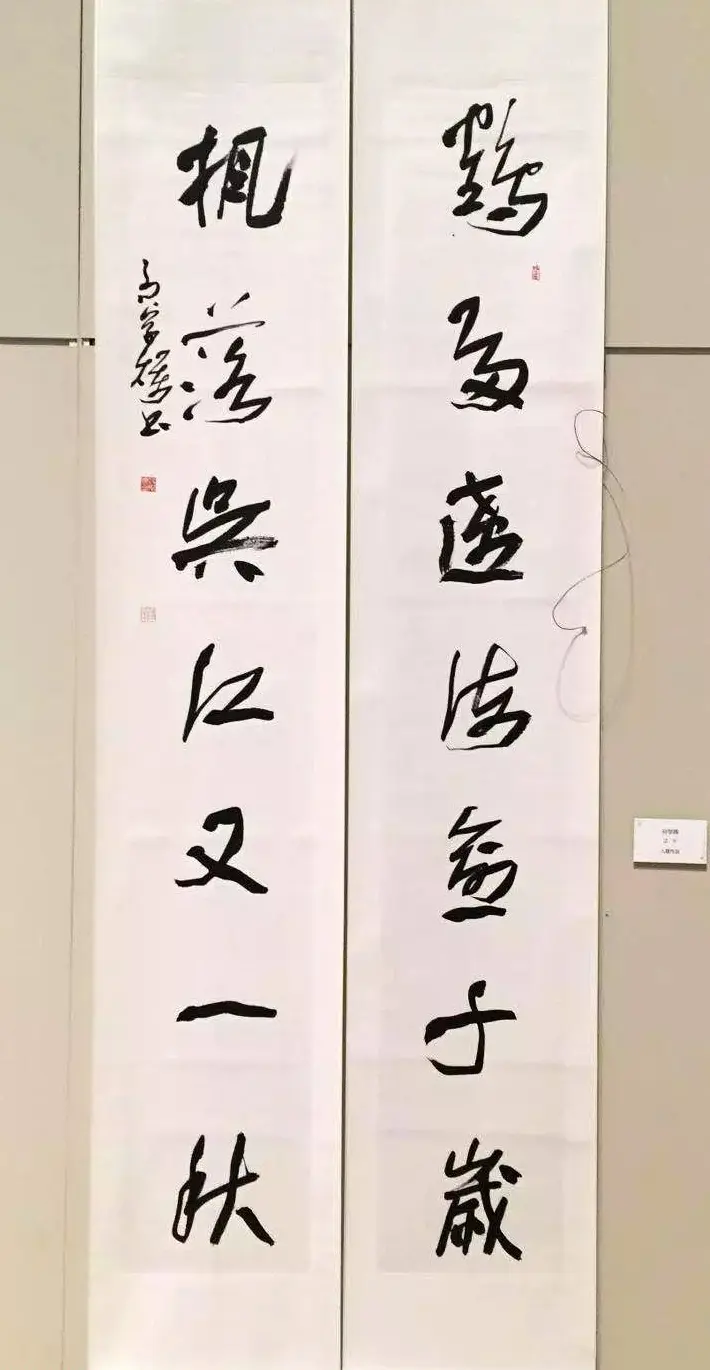 鶴歸遼海逾千歲
楓落吳江又一秋